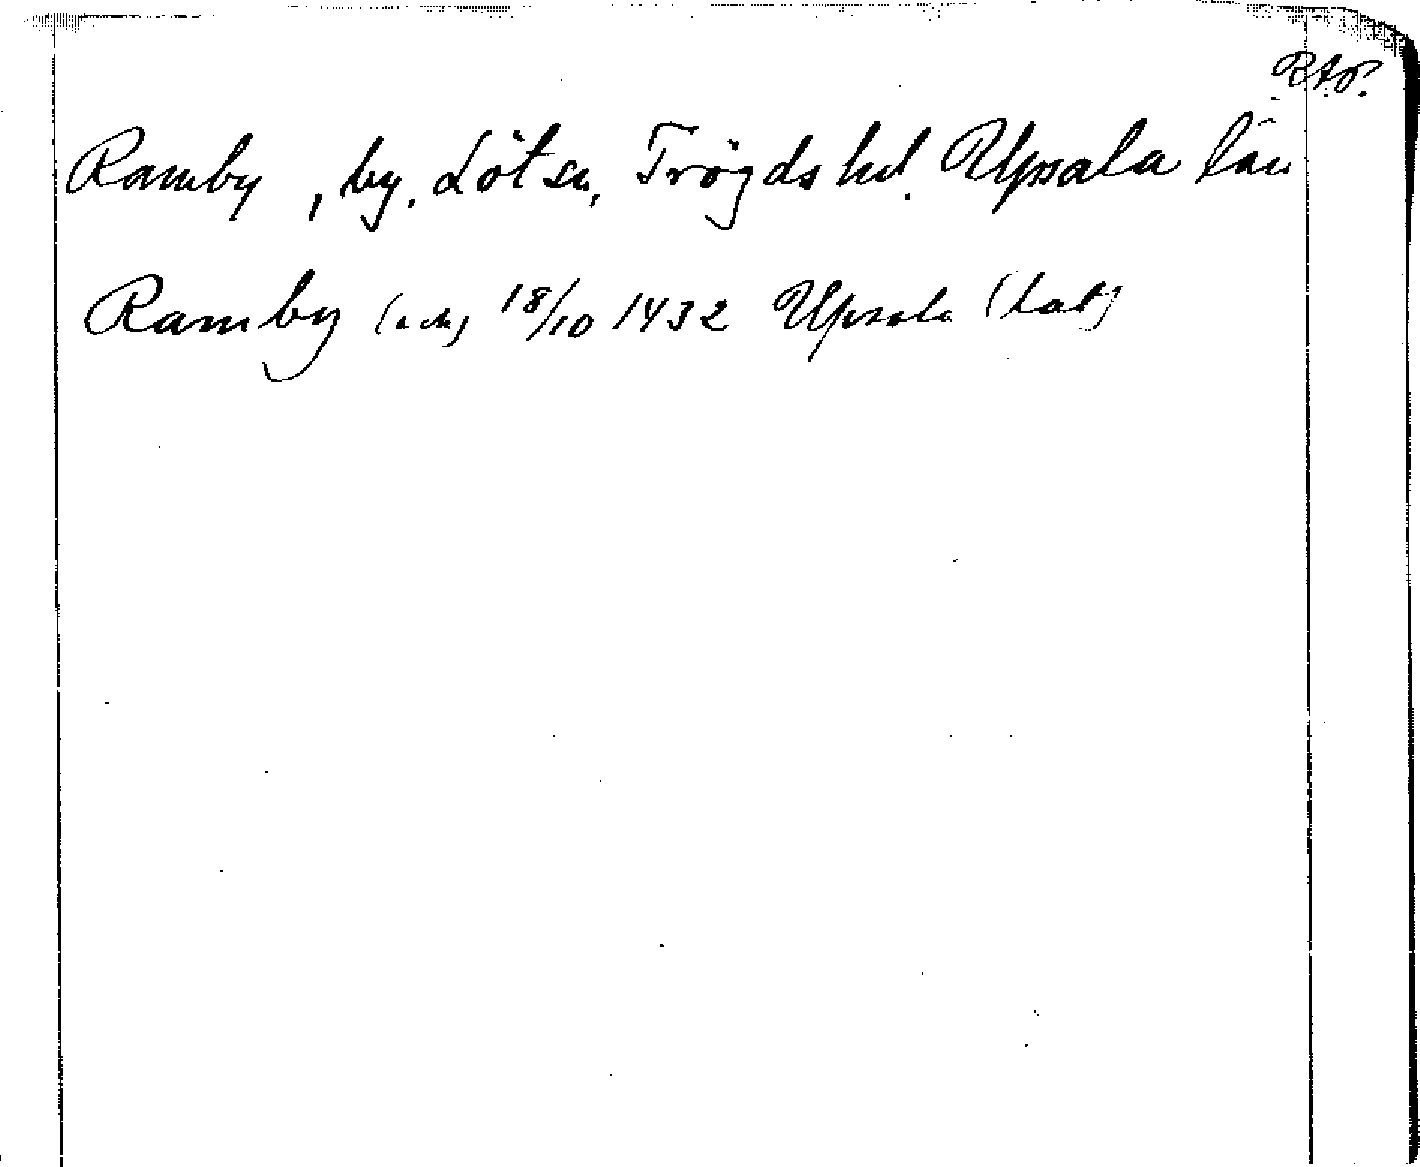 R.A.P.
Ramby, by, Löt sn, Trögds hd. Upsala län
Ramby (ack) 18/10 1432 Upsala (lat)